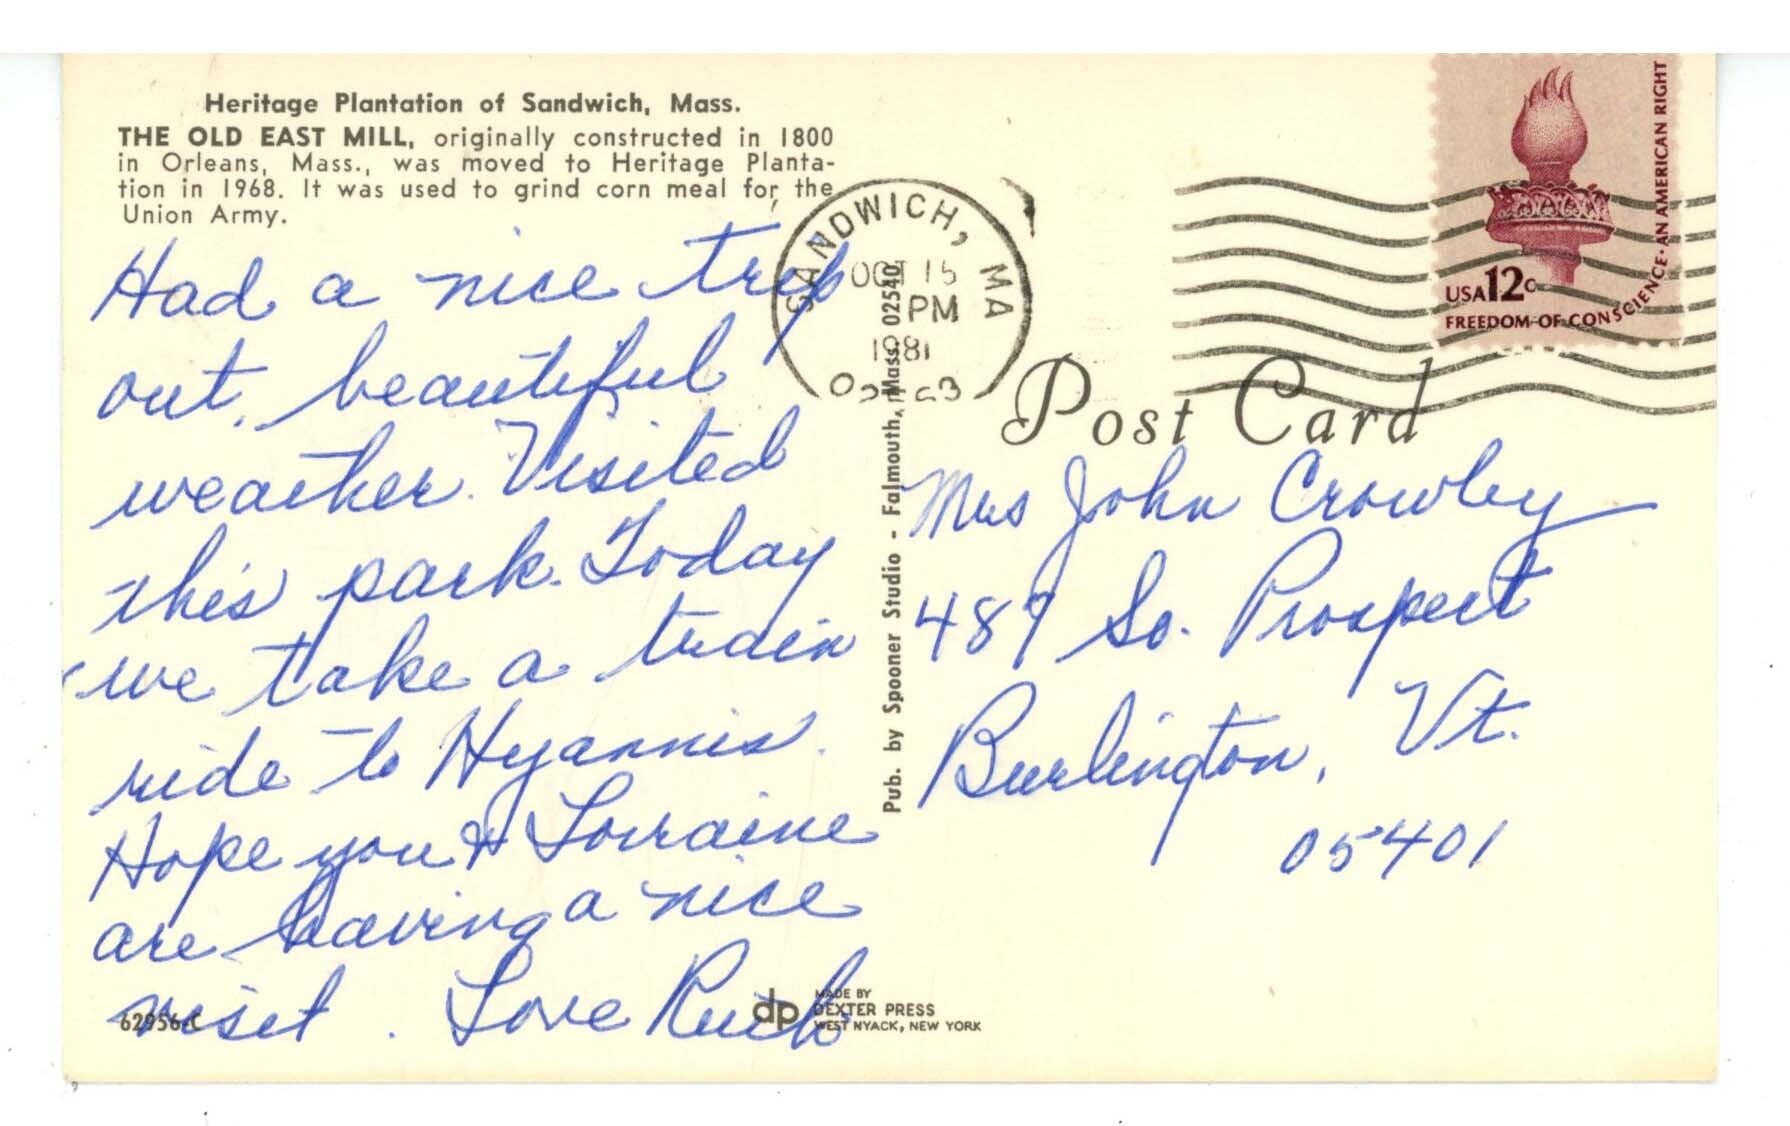 Heritage Plantation of Sandwich, Mass.
THE OLD EAST MILL, originally constructed in 1800
in Orleans, Mass., was moved to Heritage Planta-
tion in 1968. It was used to grind corn meal for the
Union Army.
Had a nice trip
out, beautiful
weather. Visited
this park. Today
we take a train
ride to Hyannis.
Hope you & Lorraine
are having a nice
visit. Love
62956-C
SANDWICH, MA
OCT 15
PM
1981
USA 12c
FREEDOM OF CONSCIENCE - AN AMERICAN RIGHT
Post Card
Pub. by Spooner Studio - Falmouth, Mass. 02540
Mrs John Crowley
489 So. Prospect
Burlington, Vt.
05401
dp
MADE BY
DEXTER PRESS
WEST NYACK, NEW YORK